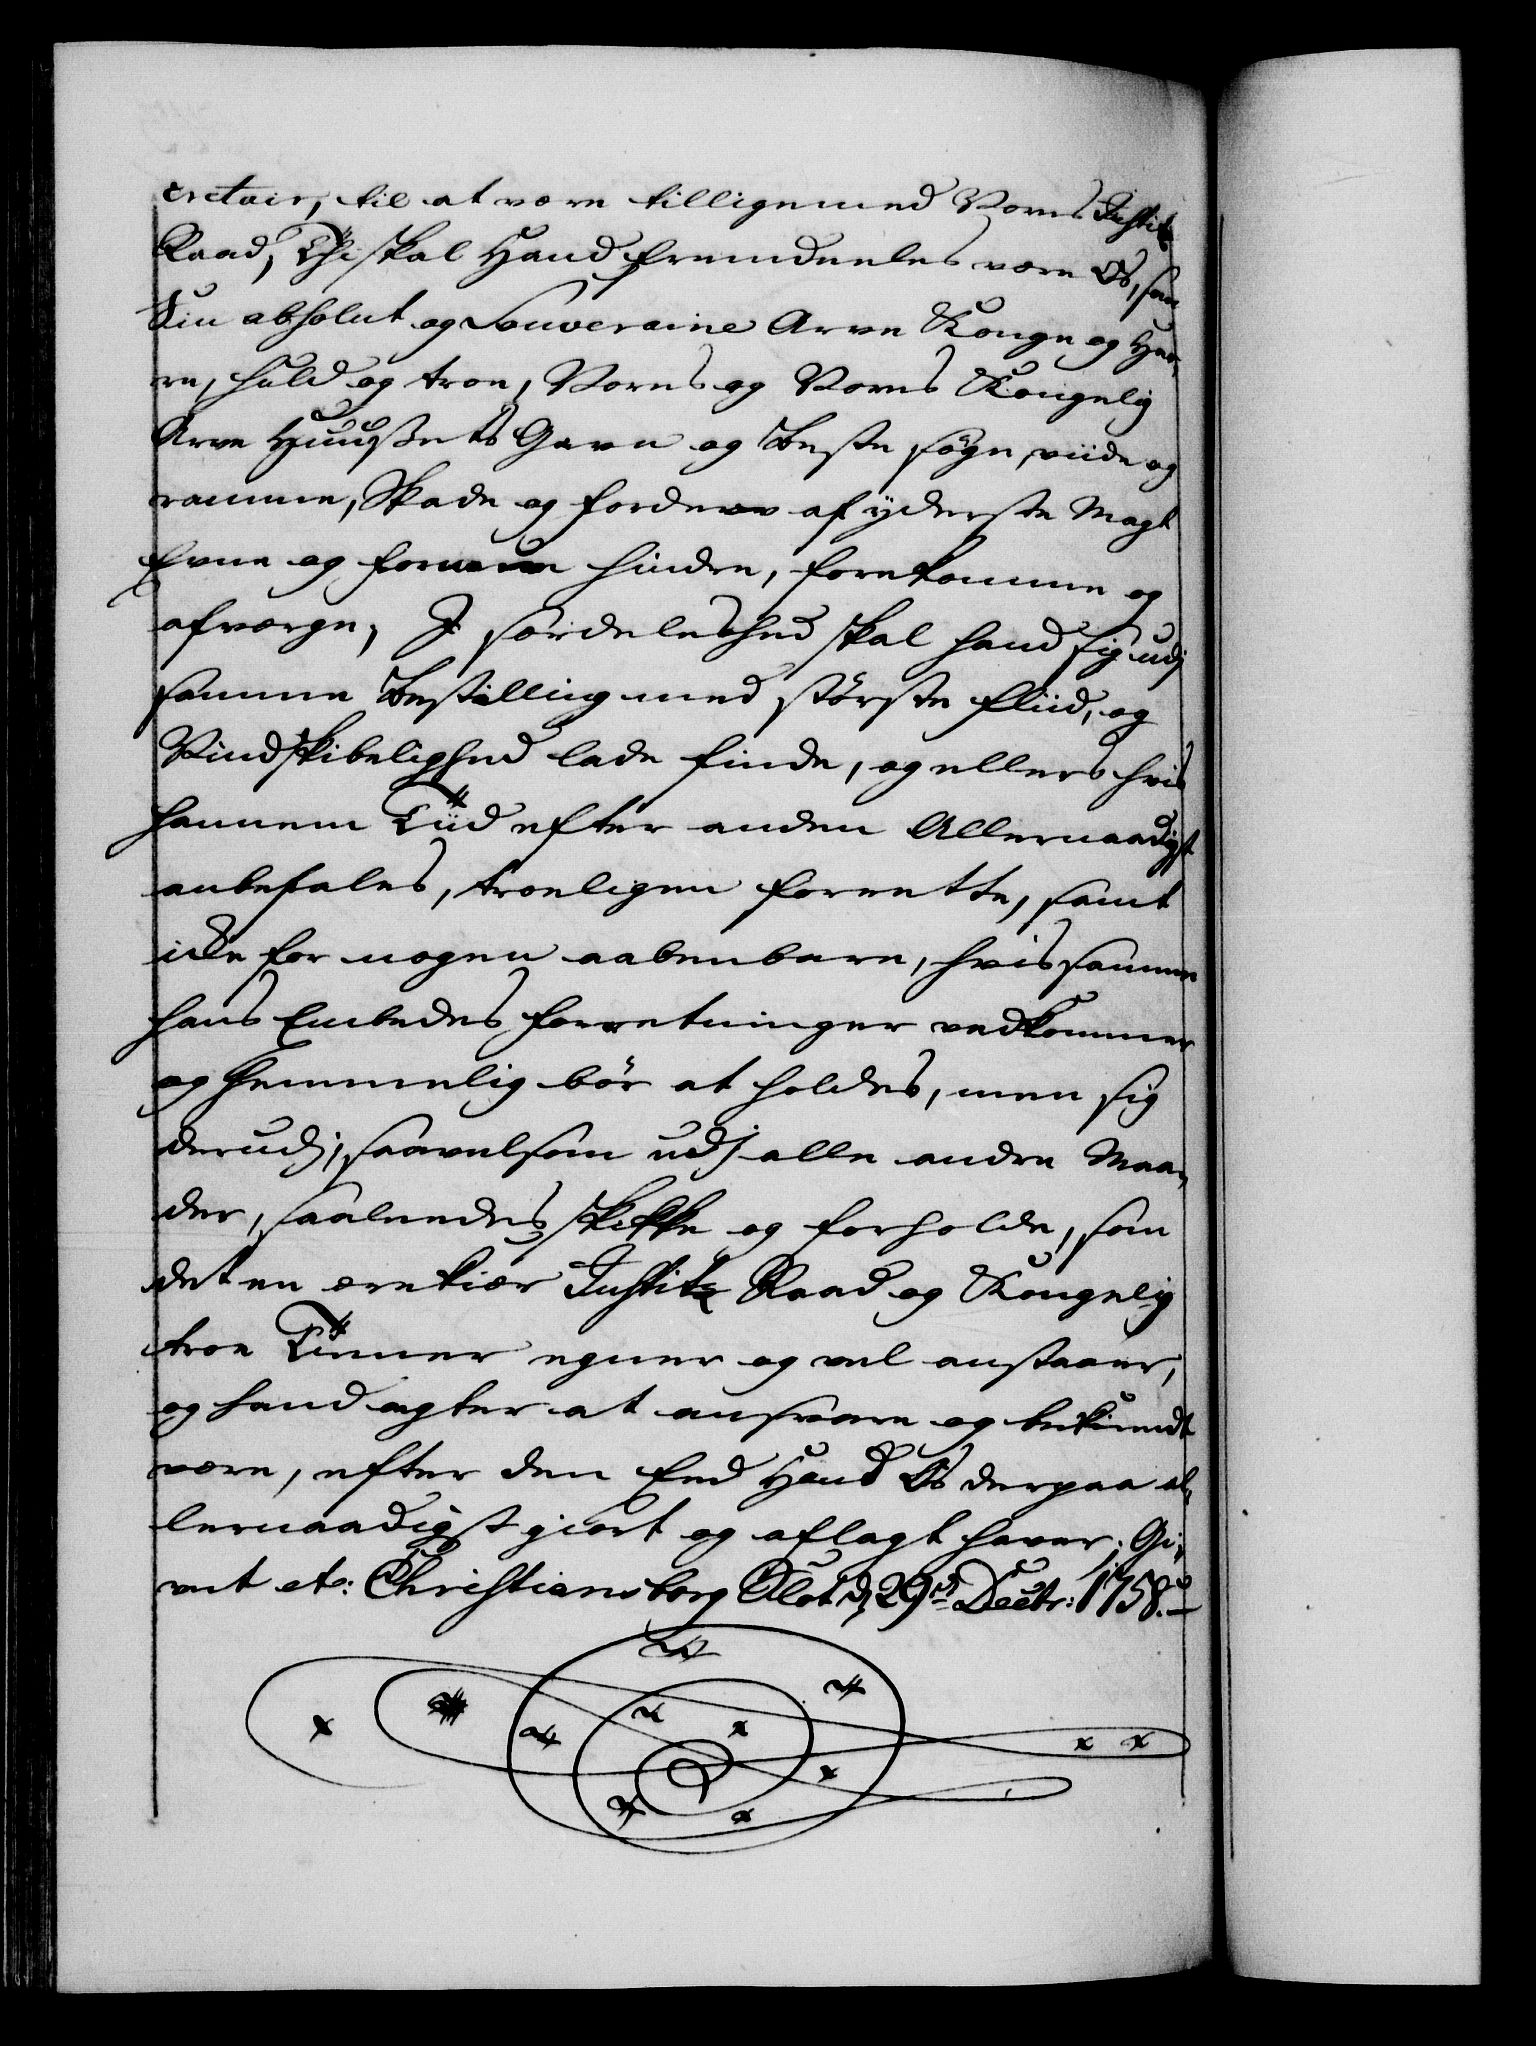 cretair, til at være tilligemed Vores Justitz
Raad, Thi skal Hand fremdeeles være Os, som
Sin absolut og Souveraine Arve Konge og Her,,
re, huld og troe, Vores og Vores Kongelig
Arve Huusets Gavn og Beste söge, viide og
ramme, Skade og forderv af yderste Magt
Evne og formue hindre, forekomme og
afværge, J særdeleshed skal hand sig udj
samme Bestilling med störste fliid, og
Vindskibelighed lade finde, og ellers hvis
hannem Tiid efter anden Allernaadigst
anbefales, troeligen forrette, samt
icke for nogen aabenbare, hvis samme
hans Embedes forretninger vedkommer
og hemmelig bör at holdes, men sig
derudj, saavelsom udj alle andre Maa,,
der, saaleedes skikke og forholde, som
det en ærekiær Justitz Raad og Kongelig
troe Tiener egner og vel anstaaer,
og hand agter at ansvare og bekiendt
være, efter den Eed Hand Os derpaa al,,
lernaadigst giort og aflagt haver; Gi,,
vet etc: Christiansborg Slot d 29de Decbr: 1758.